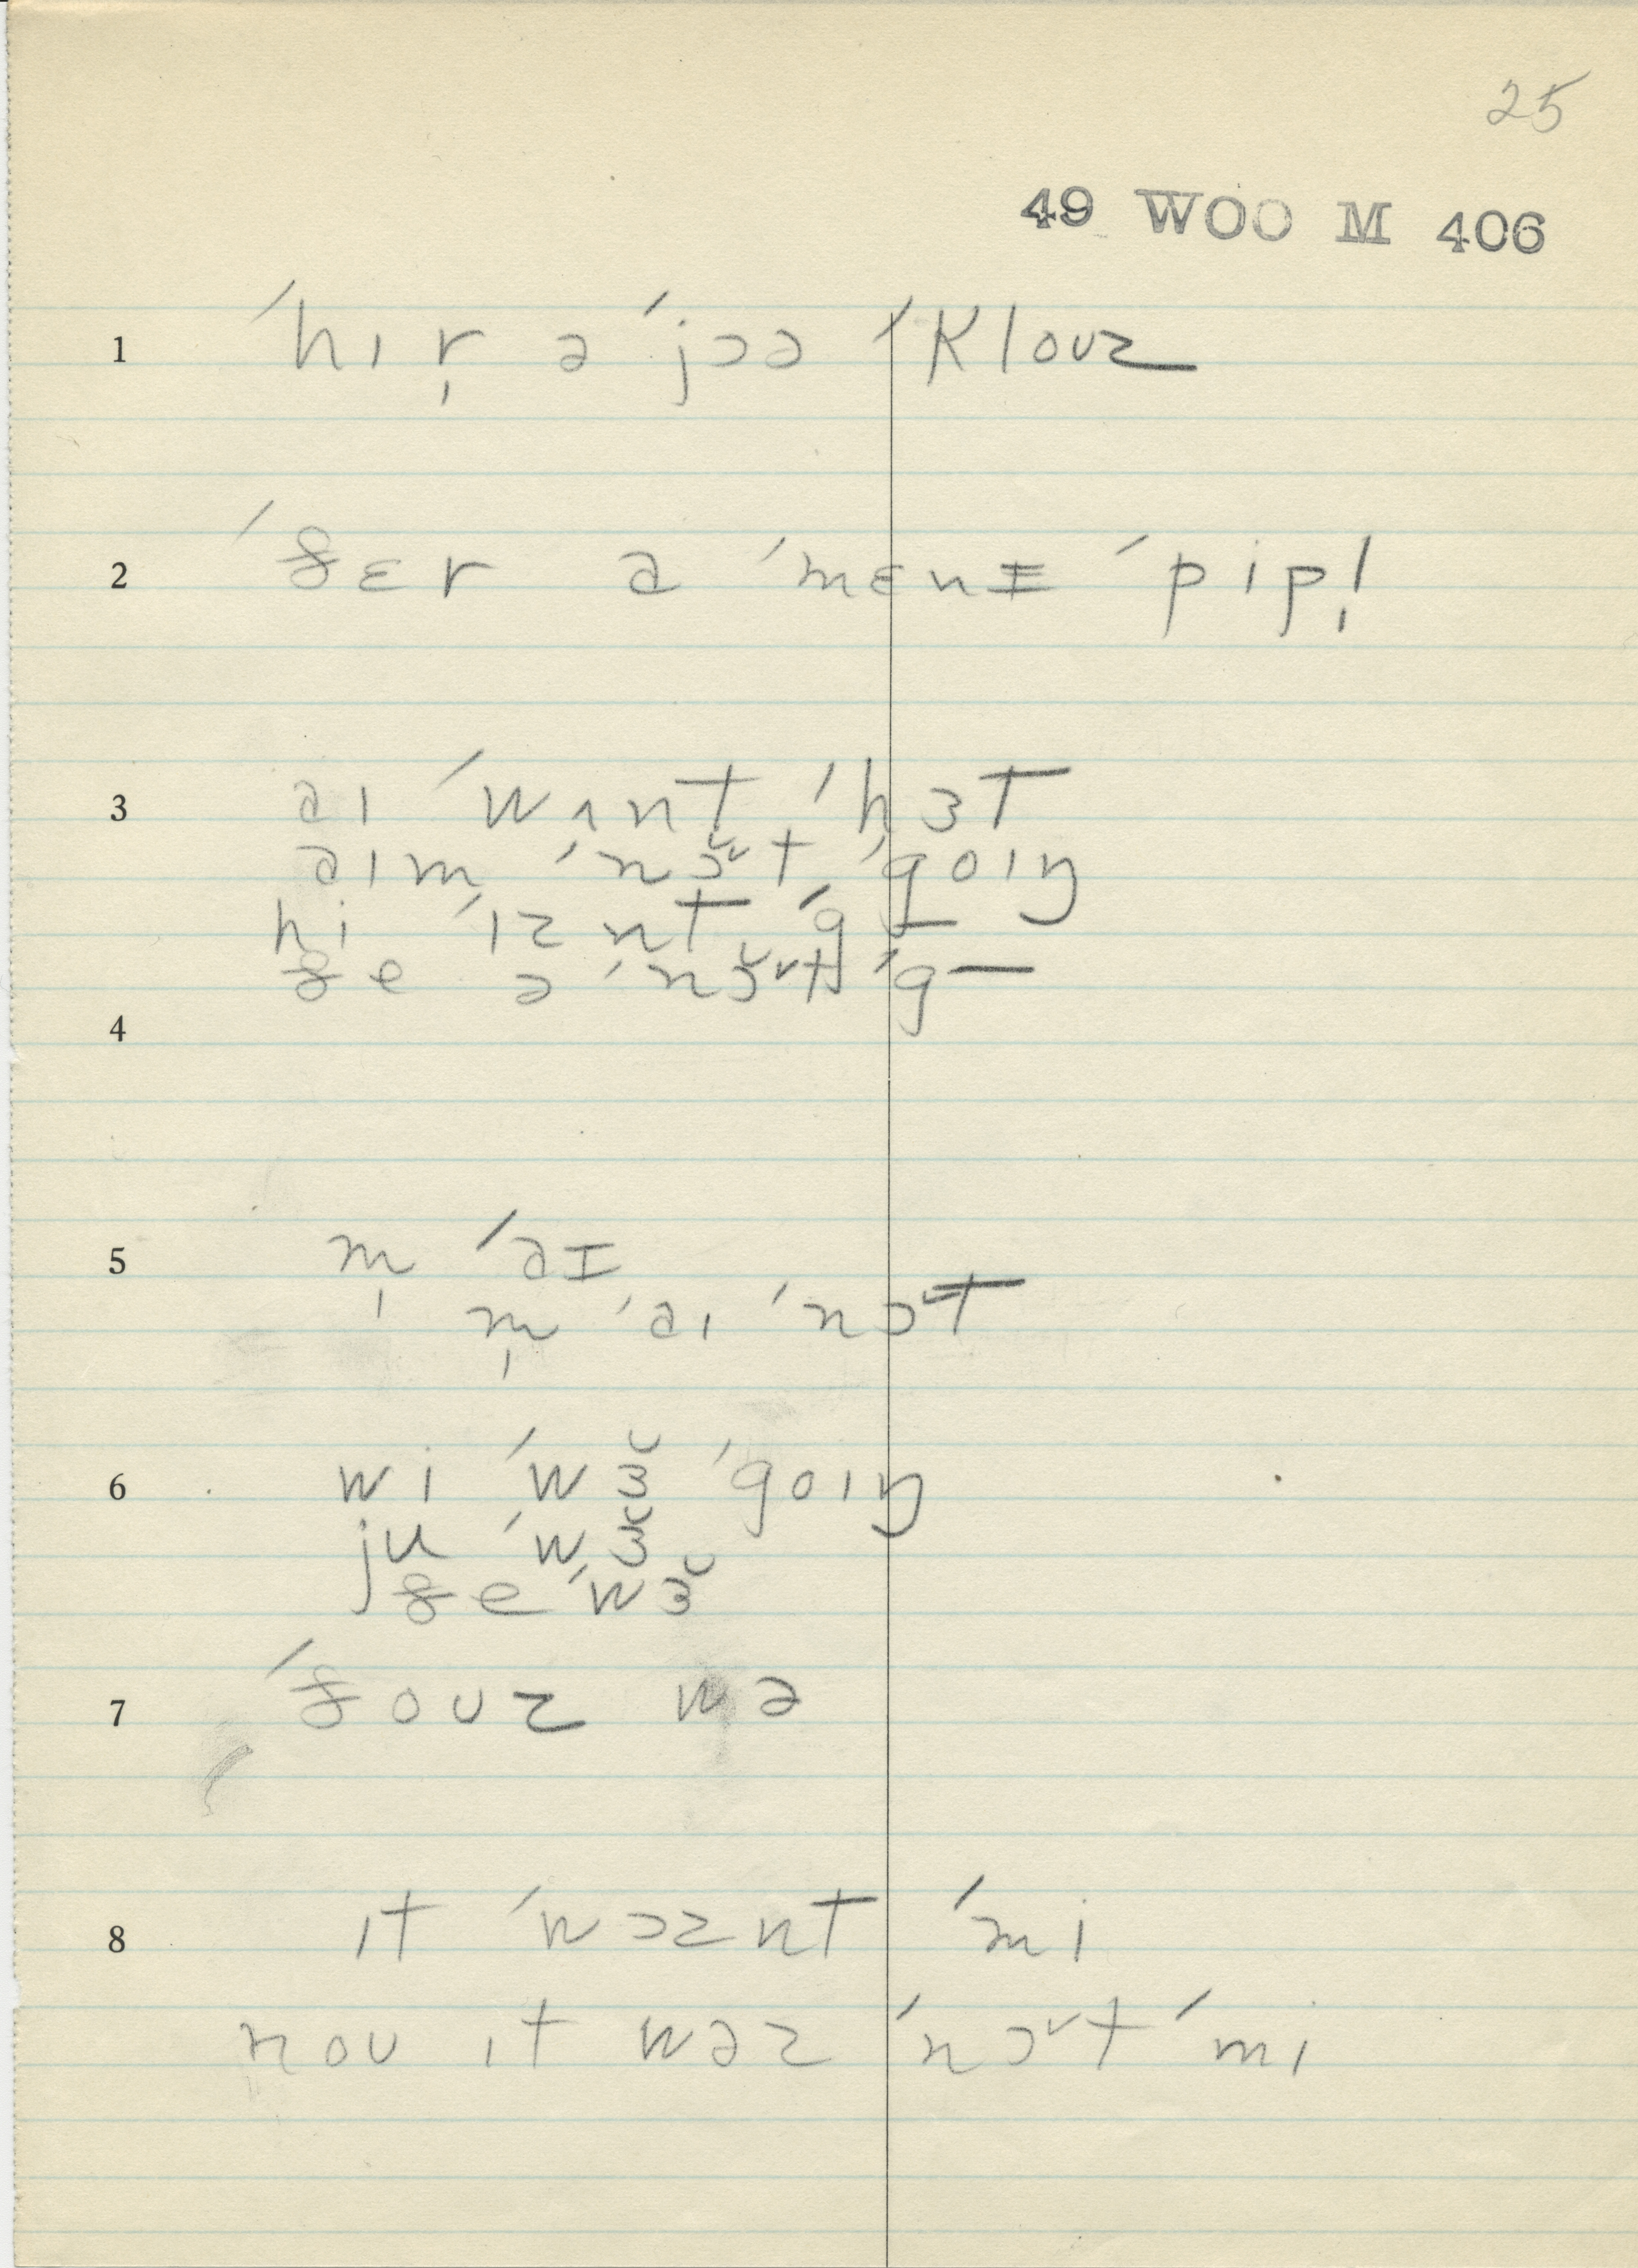 25
49 WOO M 406
1 ˈhɪr̩ ə ˈjɔə ˈklouz
2 ˈðɛr ə ˈmɛnɪ ˈpipl̩
3 aɪ ˈwʌnt ˈhɜt
aɪm ˈnɔ˅t ˈgoɪŋ
hi ˈɪznt ˈg—
ðe ə ˈnɔ˅t ˈg—
4
5 m̩ ˈaɪ
m̩ ˈaɪ ˈnɔ˅t
6 wi ˈwɜ˘ ˈgoɪŋ
ju ˈwɜ˘
ðe ˈwɜ˘
7 ˈðouz wə
8 ɪt ˈwɔznt ˈmi
nou ɪt wəz ˈnɔ˅t ˈmi